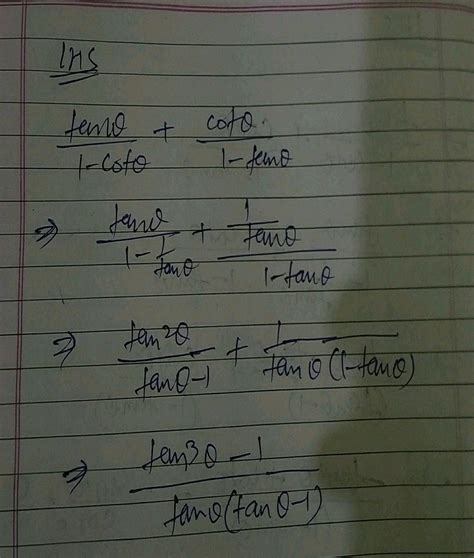 LHS
tanθ/(1-cotθ) + cotθ/(1-tanθ)
⇒ tanθ/(1-1/tanθ) + (1/tanθ)/(1-tanθ)
⇒ tan²θ/(tanθ-1) + 1/(tanθ(1-tanθ))
⇒ (tan³θ-1)/(tanθ(tanθ-1))